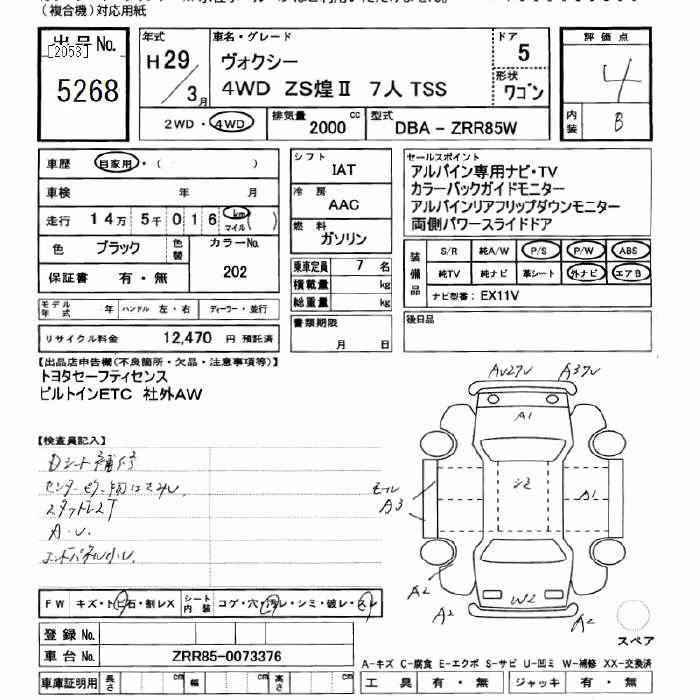 （複合機）対応用紙
出品No.
[2053]
5268
年式
H29/3月
車名・グレード
ヴォクシー
4WD ZS煌Ⅱ 7人 TSS
ドア
5
形状
ワゴン
評価点
4
内装
B
2WD・4WD
排気量
2000 cc
型式
DBA－ZRR85W
車歴 自家用・（ ）
車検 年 月
走行 14万5千016 km マイル（ ）
色 ブラック
色替
カラーNo.
202
保証書 有・無
シフト
IAT
冷房
AAC
燃料
ガソリン
乗車定員 7名
積載量 kg
総重量 kg
セールスポイント
アルパイン専用ナビ・TV
カラーバックガイドモニター
アルパインリアフリップダウンモニター
両側パワースライドドア
装備品
S/R 純A/W P/S P/W ABS
純TV 純ナビ 革シート 外ナビ エアB
ナビ型番：EX11V
モデル年式 年 ハンドル 左・右 ディーラー・並行
リサイクル料金 12,470 円 預託済
書類期限
月 日
後日品
【出品店申告欄(不良箇所・欠品・注意事項等)】
トヨタセーフティセンス
ビルトインETC 社外AW
【検査員記入】
Dシート補修
A・U
AU27U A37U
A1
モール
A3
A1
A2
A2
W2
A2
スペア
FW キズ・トビ石・割レX
シート内装
コゲ・穴・汚レ・シミ・破レ・スレ
登録No.
車台No. ZRR85-0073376
車庫証明用 長さ cm 幅 cm 高さ cm
A-キズ C-腐食 E-エクボ S-サビ U-凹ミ W-補修 XX-交換済
工具 有・無 ジャッキ 有・無